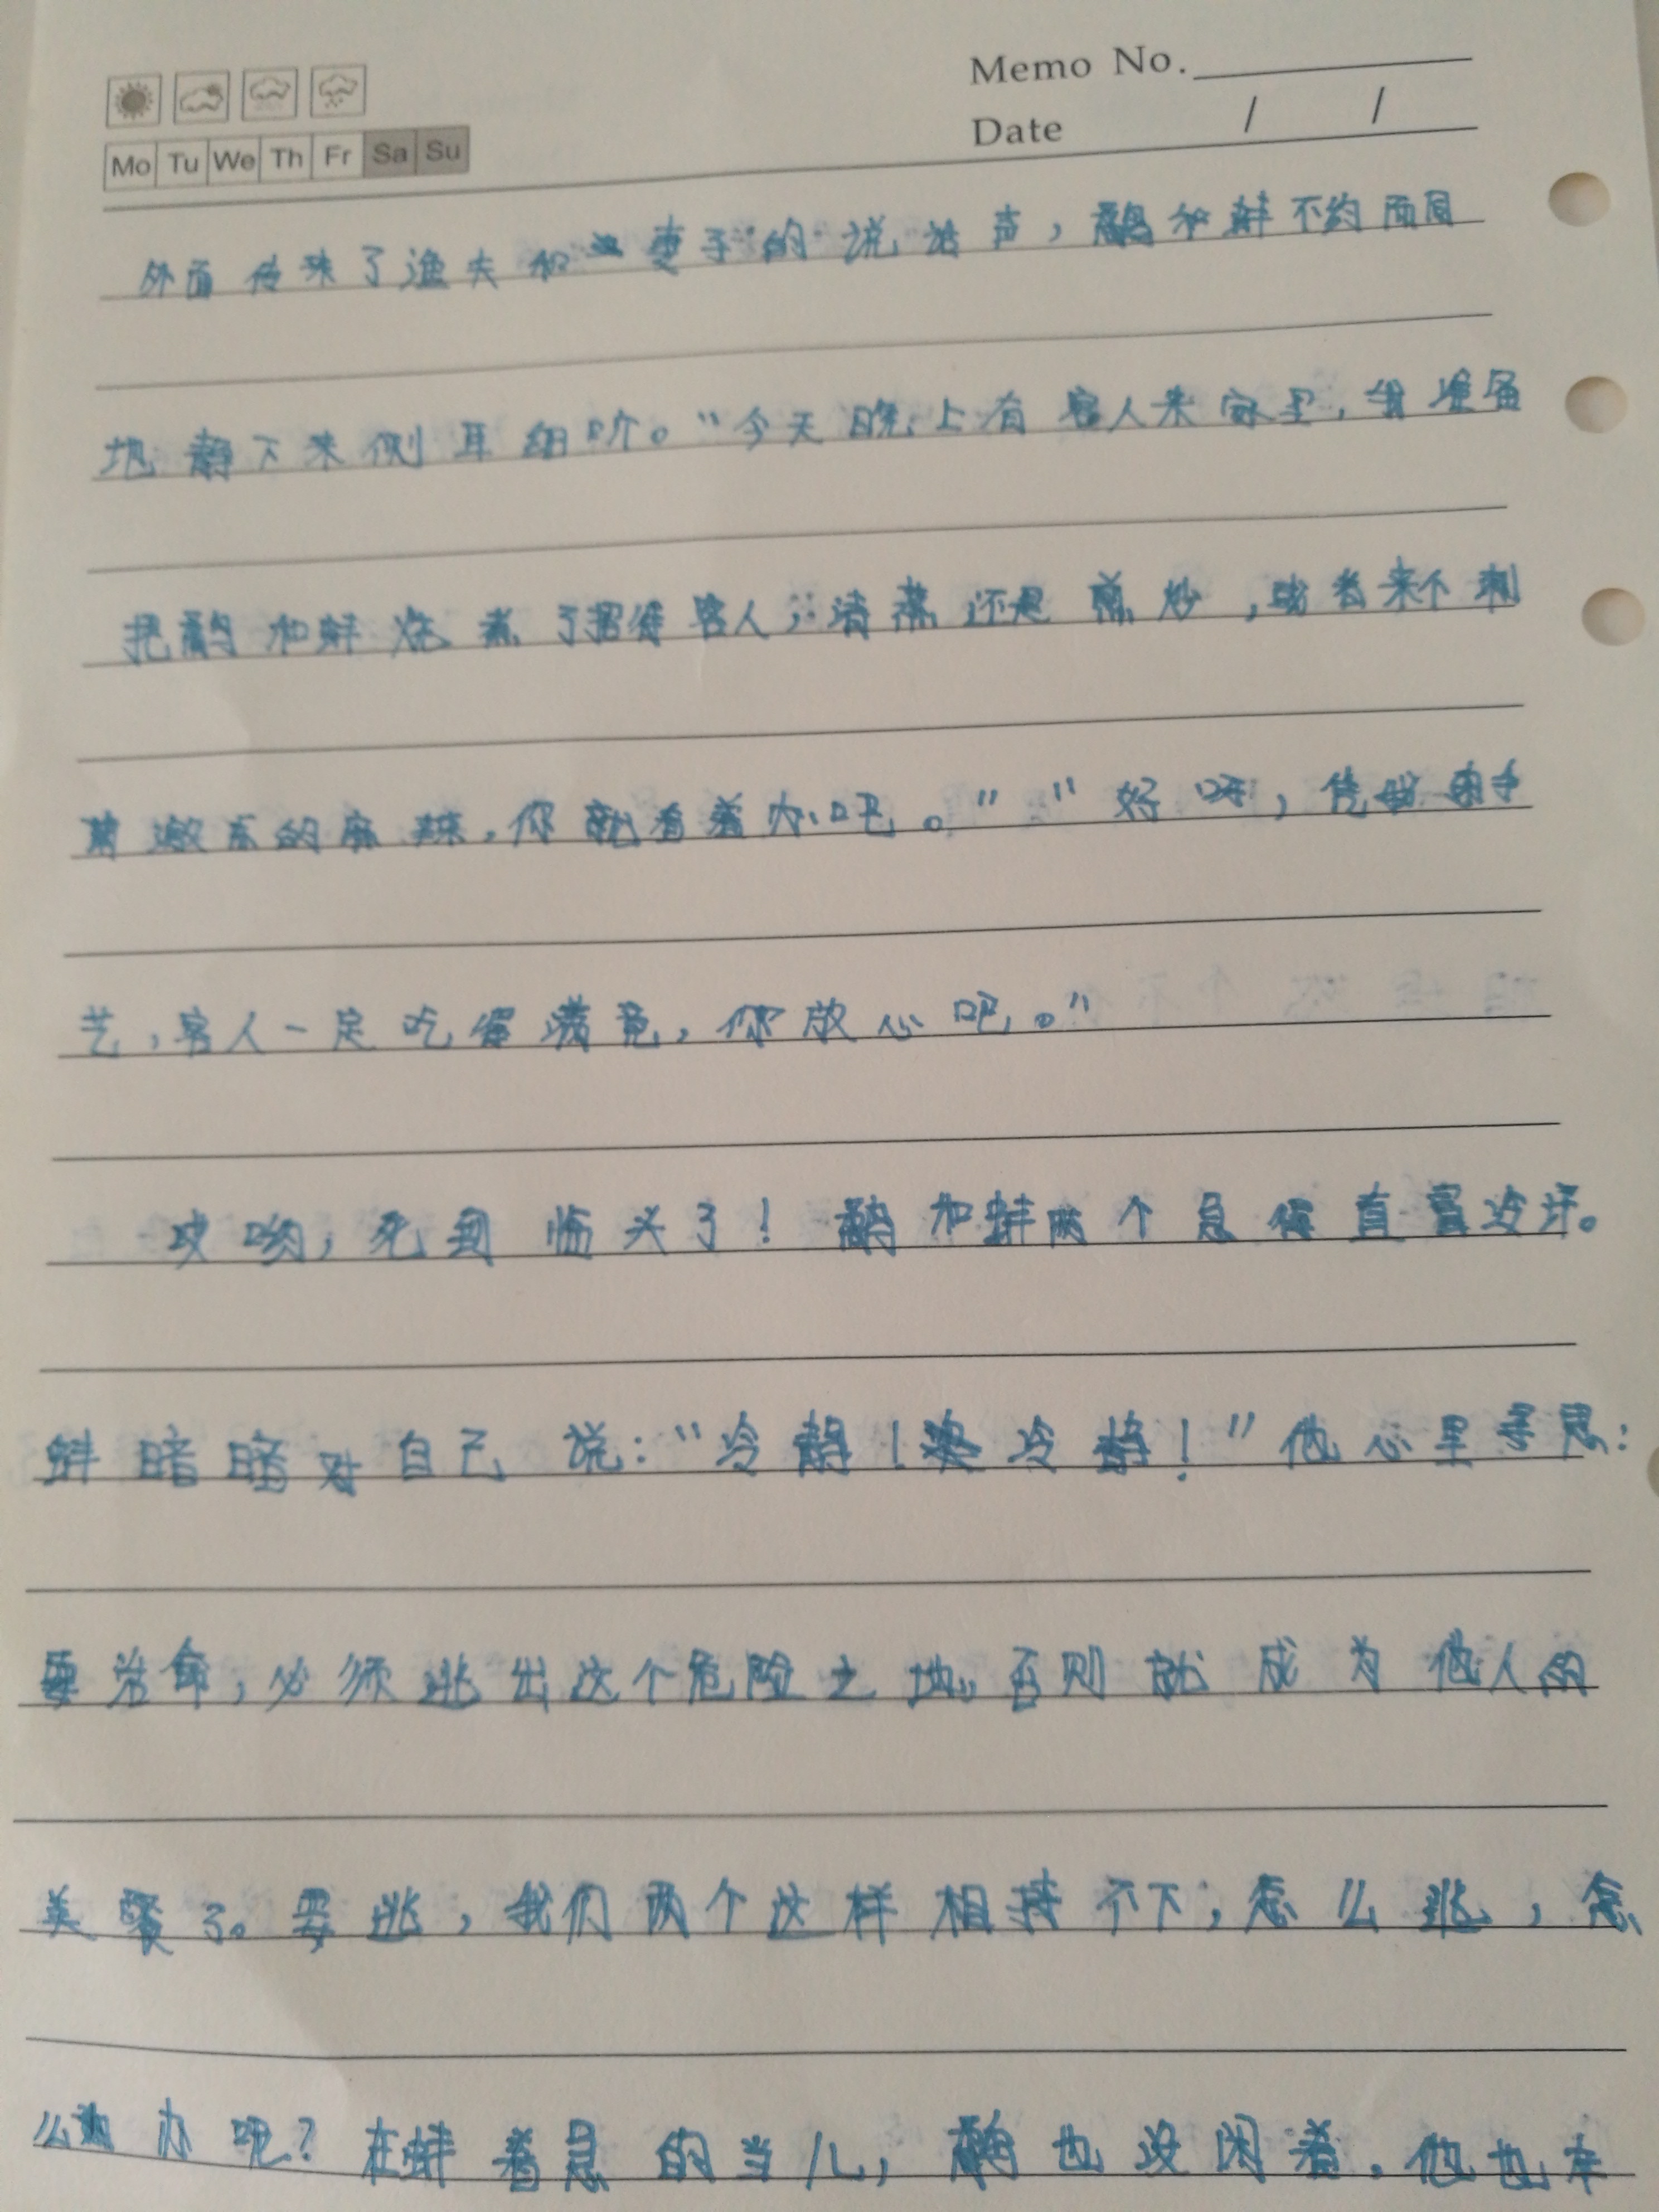 Memo No.
Date / /
Mo Tu We Th Fr Sa Su
外面传来了渔夫和妻子的说话声，鹬和蚌不约而同
地静下来侧耳细听。“今天晚上有客人来家里，准备
把鹬和蚌烧煮了招待客人，清蒸还是煎炒，或者来个刺
激的麻辣，你就看着办吧。”“好呀，凭我的手
艺，客人一定吃得满意，你放心吧。”
哎哟，死到临头了！鹬和蚌两个急得直冒冷汗。
蚌暗暗对自己说：“冷静！要冷静！”他心里寻思：
要活命，必须逃出这个危险之地，否则就成为他人的
美餐了。要逃，我们两个这样相持不下，怎么逃，怎
么办呢？在蚌着急的当儿，鹬也没闲着，他也在